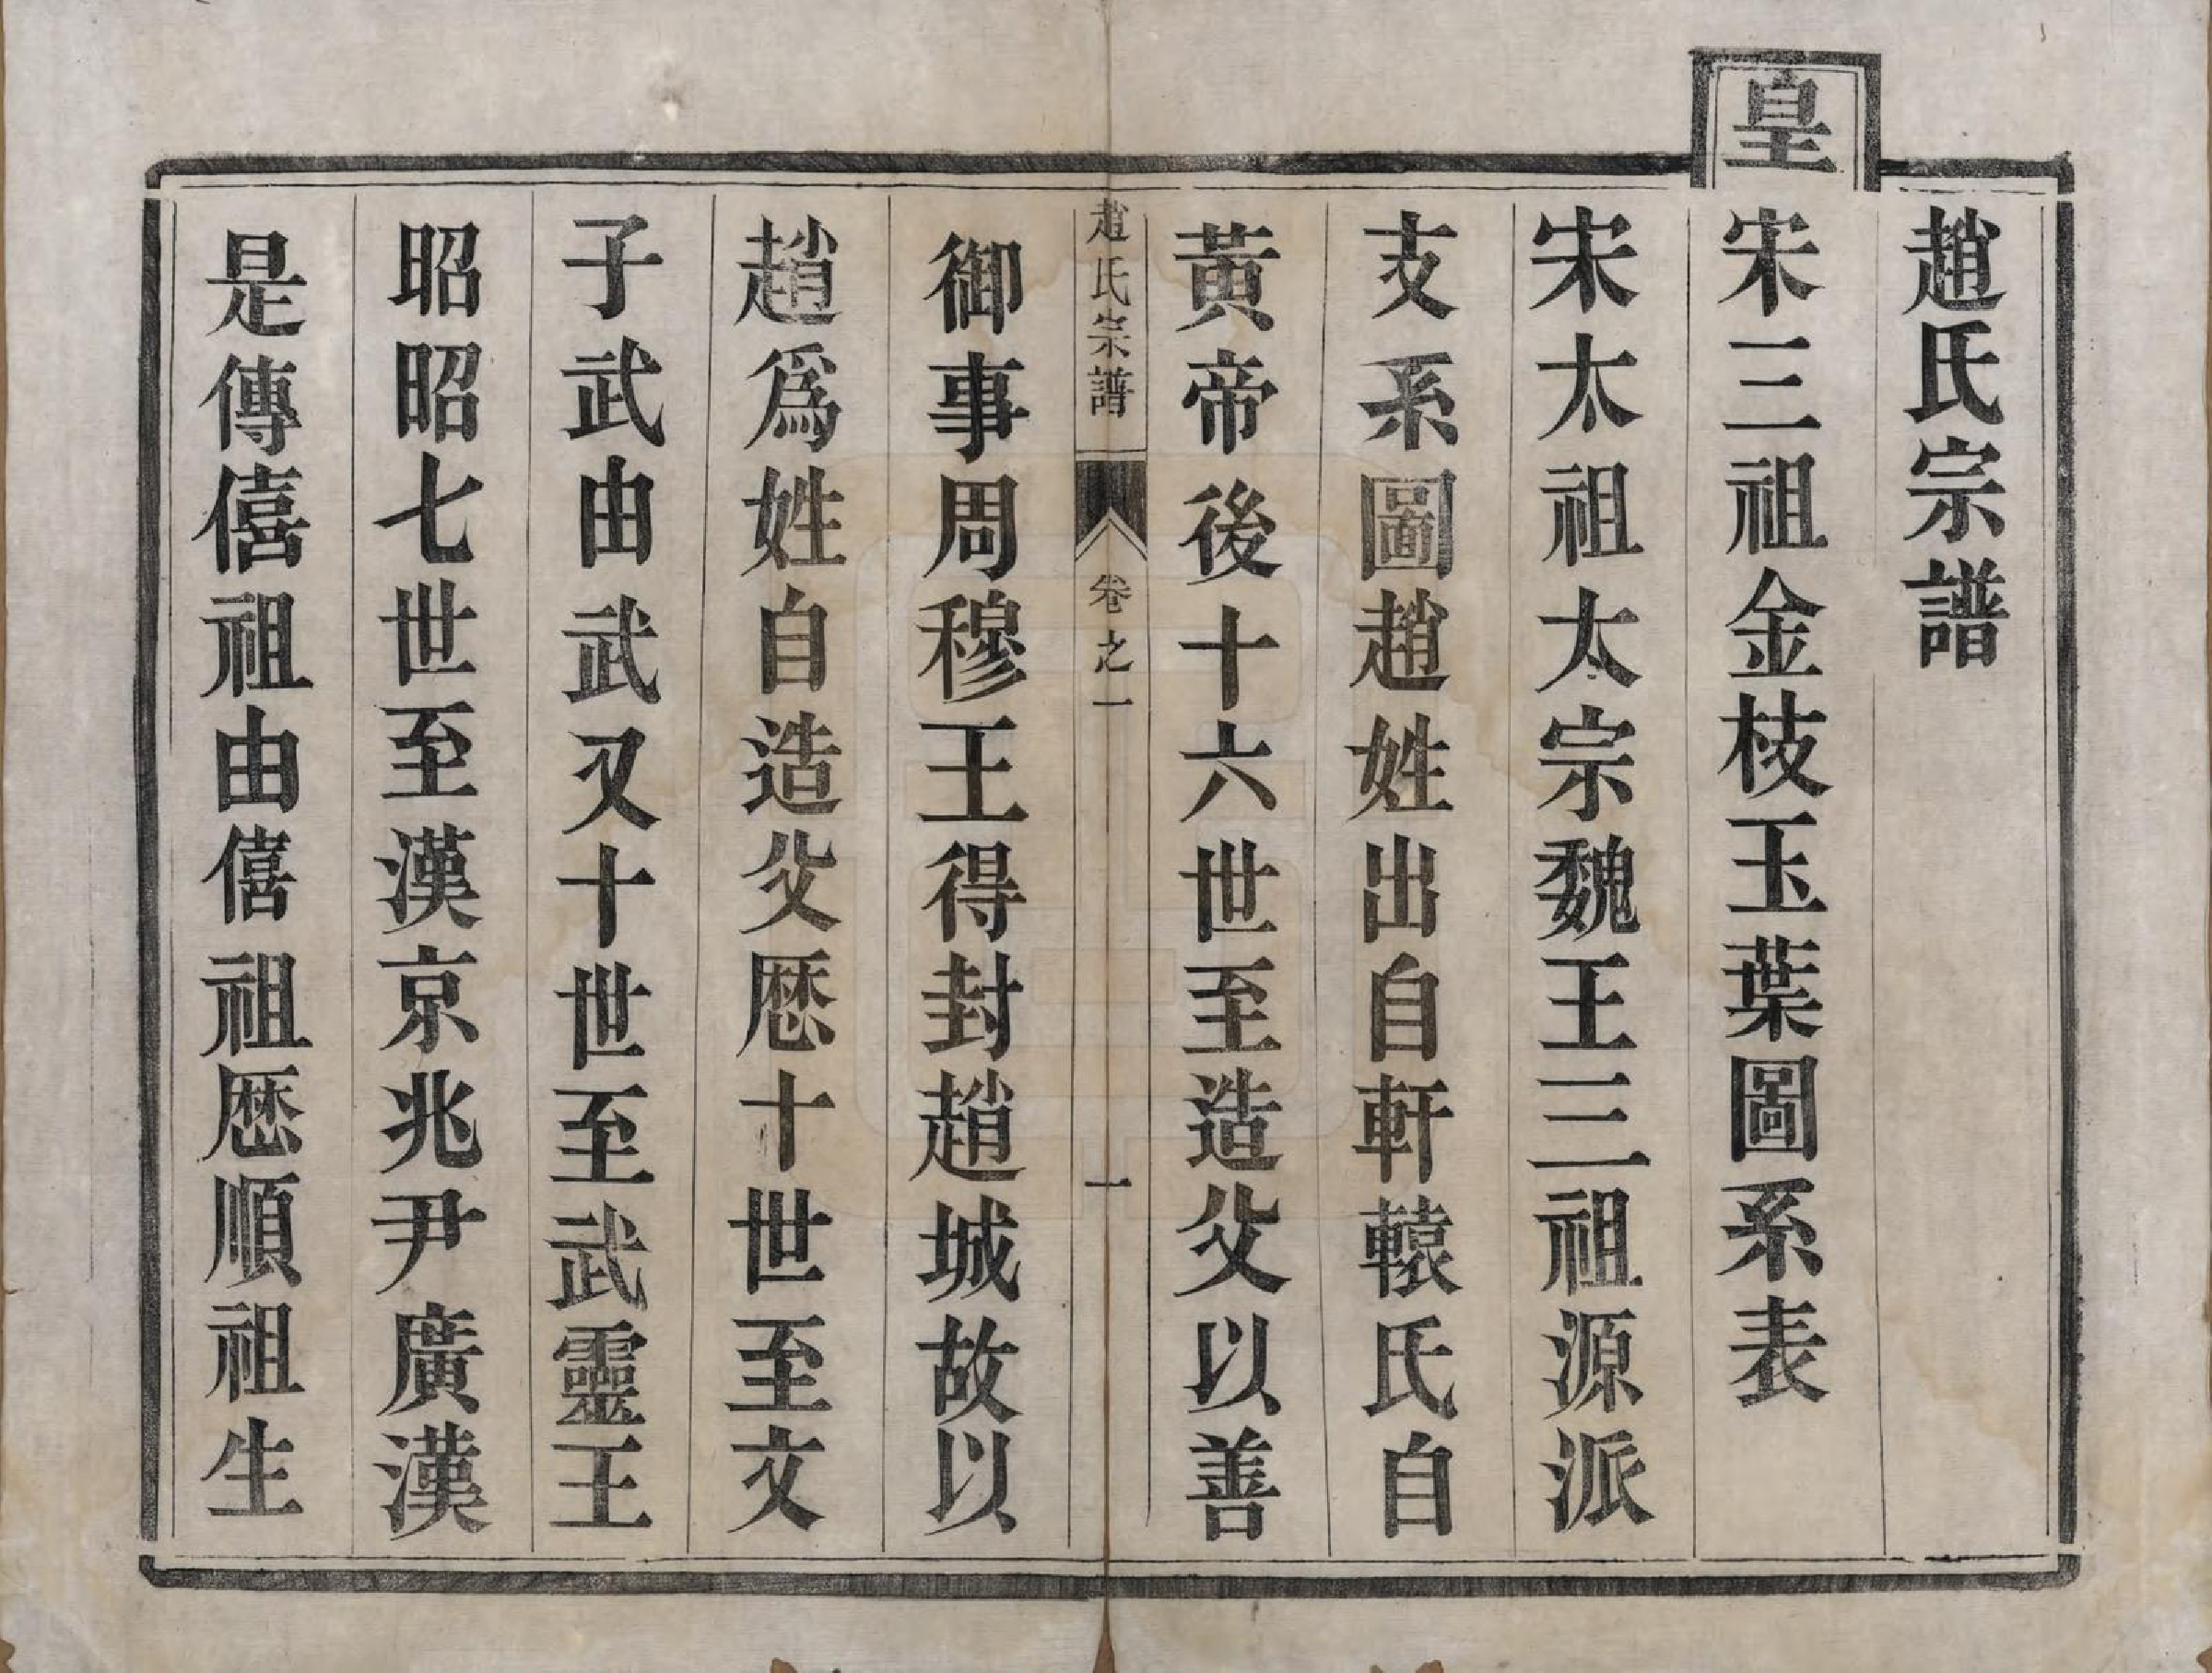 趙氏宗譜
皇宋三祖金枝玉葉圖系表
宋太祖太宗魏王三祖源派
支系圖趙姓出自軒轅氏自
黃帝後十六世至造父以善
趙氏宗譜 卷之一 一
御事周穆王得封趙城故以
趙爲姓自造父厯十世至文
子武由武又十世至武靈王
昭昭七世至漢京兆尹廣漢
是傳僖祖由僖祖厯順祖生